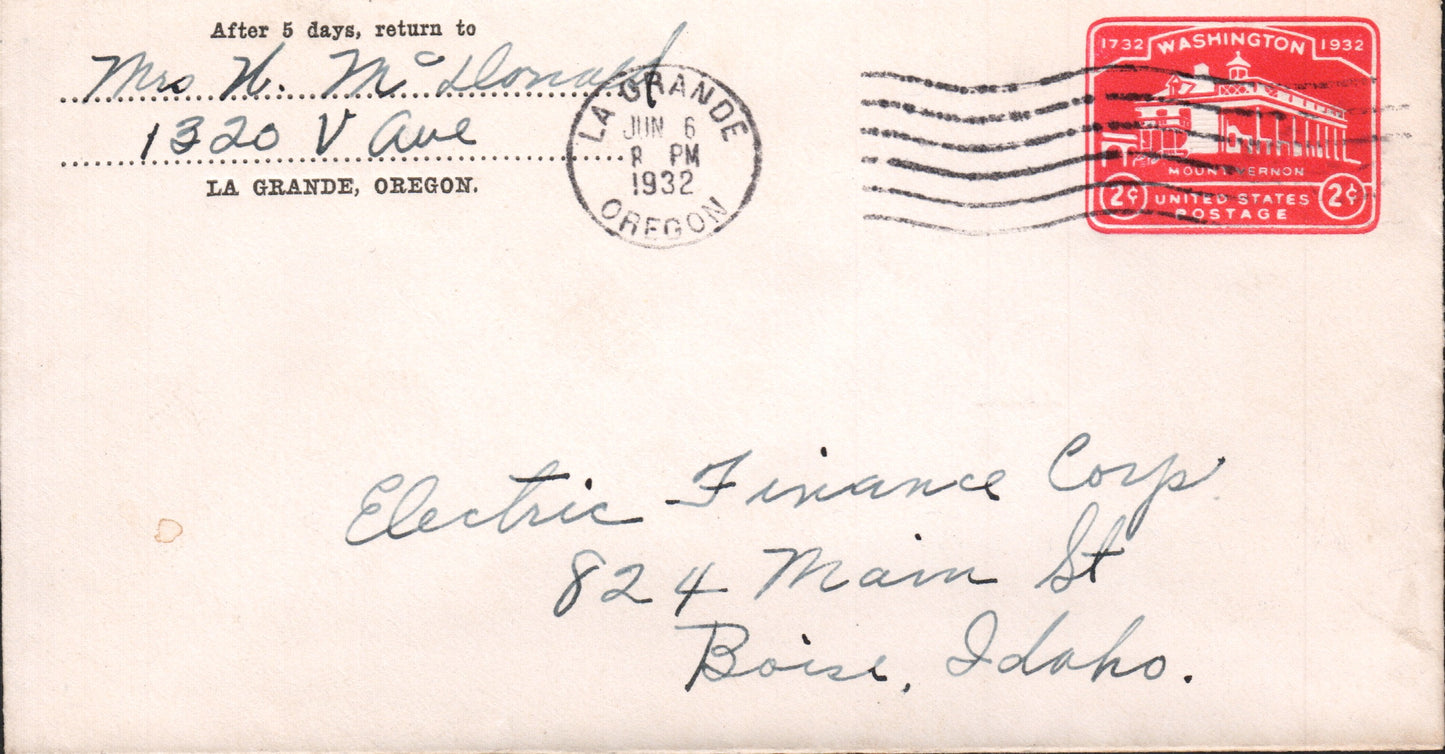 After 5 days, return to
Mrs H. Mc Donald
1320 V Ave
LA GRANDE, OREGON.
LA GRANDE
JUN 6
8 PM
1932
OREGON
1732 WASHINGTON 1932
MOUNT VERNON
2¢ UNITED STATES 2¢
POSTAGE
Electric Finance Corp
824 Main St
Boise, Idaho.